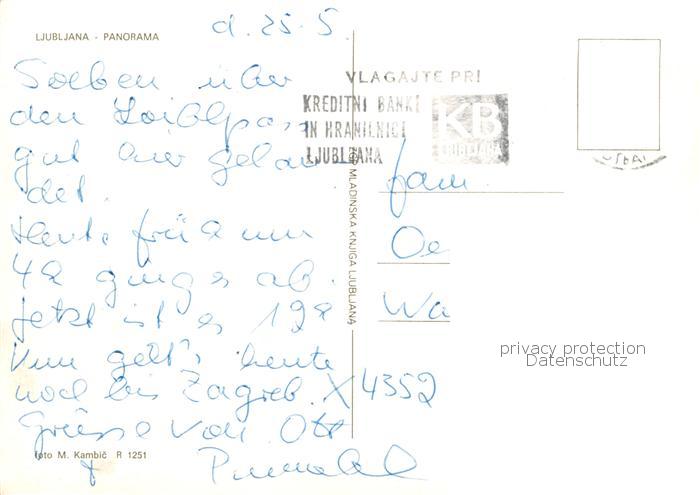 LJUBLJANA - PANORAMA
d. 25. 5.
Soeben über
den Loiblpass
gut hier gelan
det.
Heute früh um
4h ging es ab.
Jetzt ist es 19h
Nun geht's heute
noch bis Zagreb. X 4352
Grüsse von
foto M. Kambič R 1251
VLAGAJTE PRI
KREDITNI BANKI
IN HRANILNICI
LJUBLJANA
KB
LJUBLJANA
MLADINSKA KNJIGA LJUBLJANA
fam.
Oe
Wa
privacy protection
Datenschutz